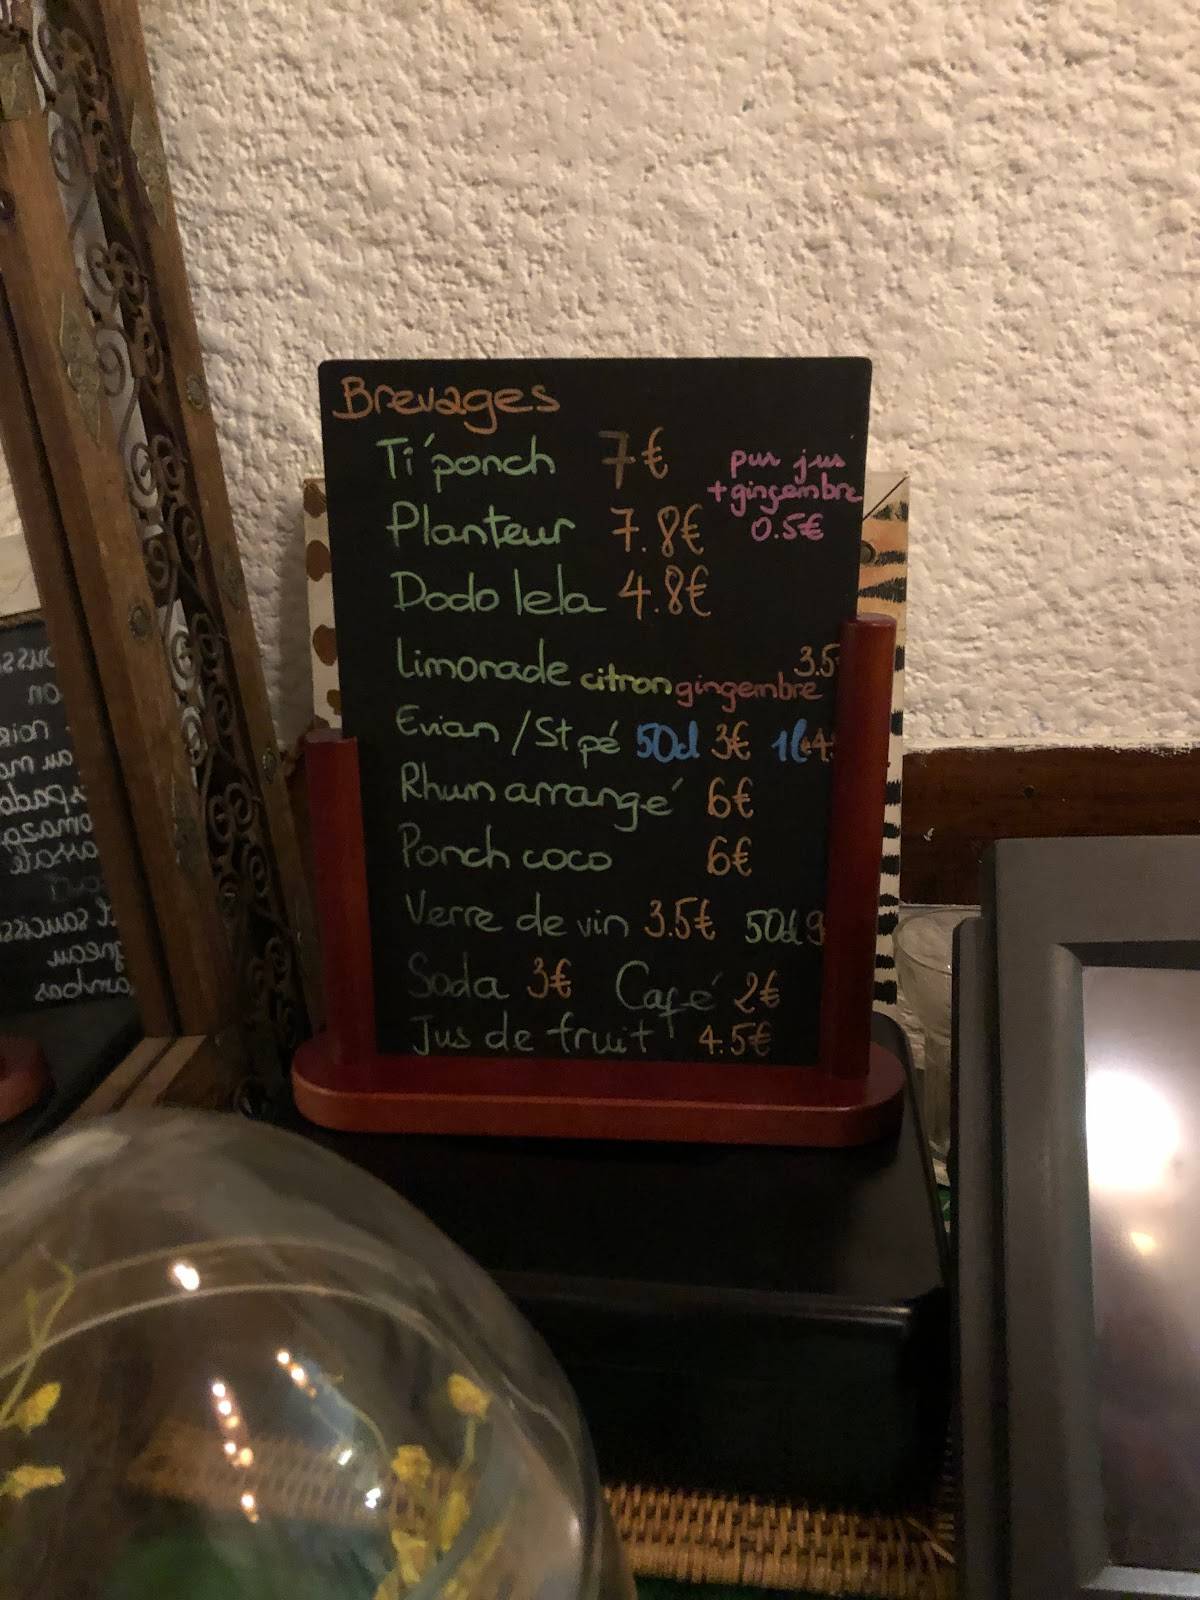 Brevages
Ti'ponch 7€
pur jus
+gingembre
0.5€
Planteur 7.8€
Dodo lela 4.8€
Limonade citron gingembre 3.5
Evian / St pé 50cl 3€ 1l 4
Rhum arrangé 6€
Ponch coco 6€
Verre de vin 3.5€ 50cl 9
Soda 3€ Café 2€
Jus de fruit 4.5€